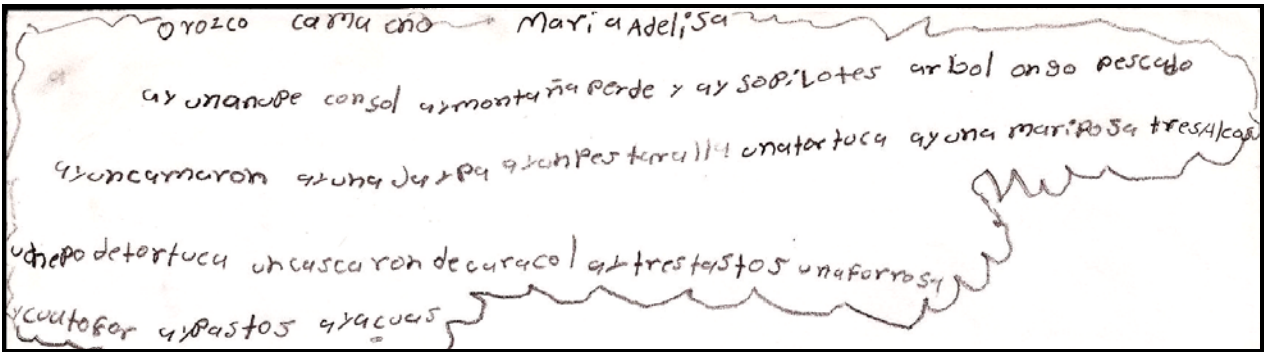 orozco camacho Maria Adelisa
ay unanupe con sol aymontaña perde y ay sopilotes arbol ongo pescado
ayuncamaron ayuna Jaypa ayunpestaralla unatortuca ayuna mariposa tres Alcas
unepo detortuca uncascaron decaracol aytrestastos unaforrosa
ycuatofor aypastos ayacuas